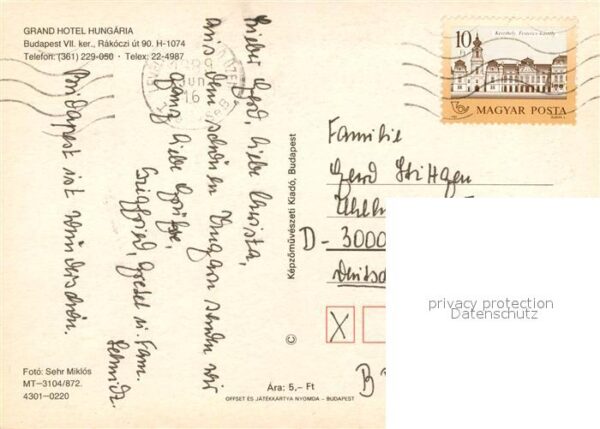 GRAND HOTEL HUNGÁRIA
Budapest VII. ker., Rákóczi út 90. H-1074
Telefon: (361) 229-050 · Telex: 22-4987
Liebe Gerd, liebe Christa,
aus dem schönen Ungarn senden wir
ganz liebe Grüße,
Siegfried, Gretel u. Fam.
Schmidt.
Budapest ist wunderschön.
Fotó: Sehr Miklós
MT-3104/872.
4301-0220
Képzőművészeti Kiadó, Budapest
©
Ára: 5,- Ft
OFFSET ÉS JÁTÉKKÁRTYA NYOMDA - BUDAPEST
Keszthely, Festetics-kastély
10 Ft
MAGYAR POSTA
Familie
Gerd
D-3000
X
privacy protection
Datenschutz